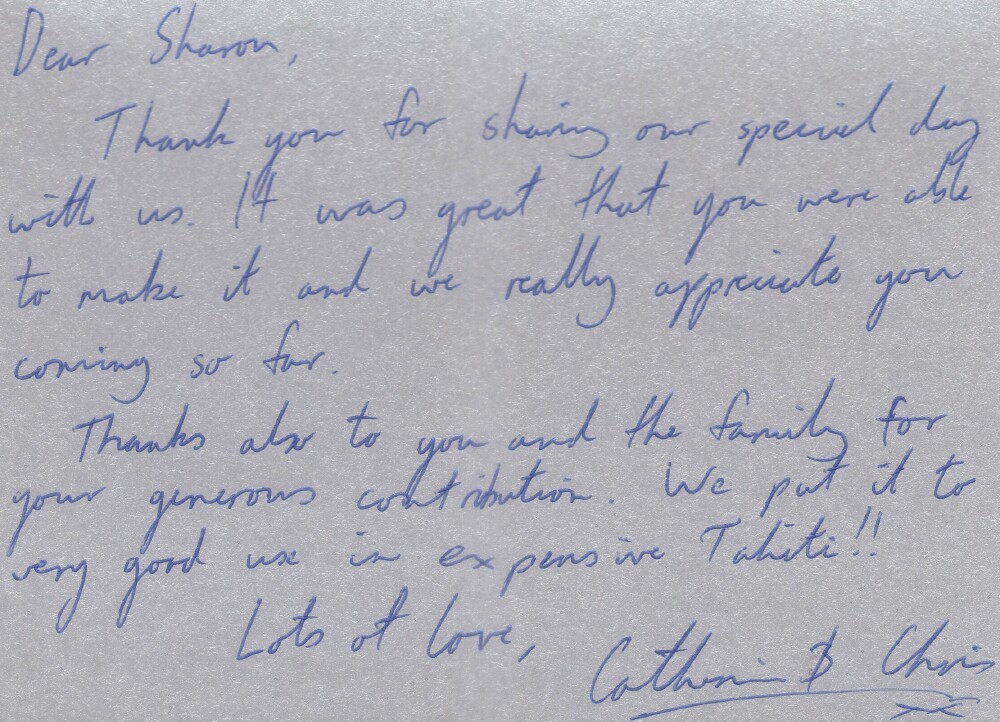 Dear Sharon,
Thank you for sharing our special day
with us. It was great that you were able
to make it and we really appreciate you
coming so far.
Thanks also to you and the family for
your generous contribution. We put it to
very good use in expensive Tahiti!!
Lots of love,
Catherine & Chris